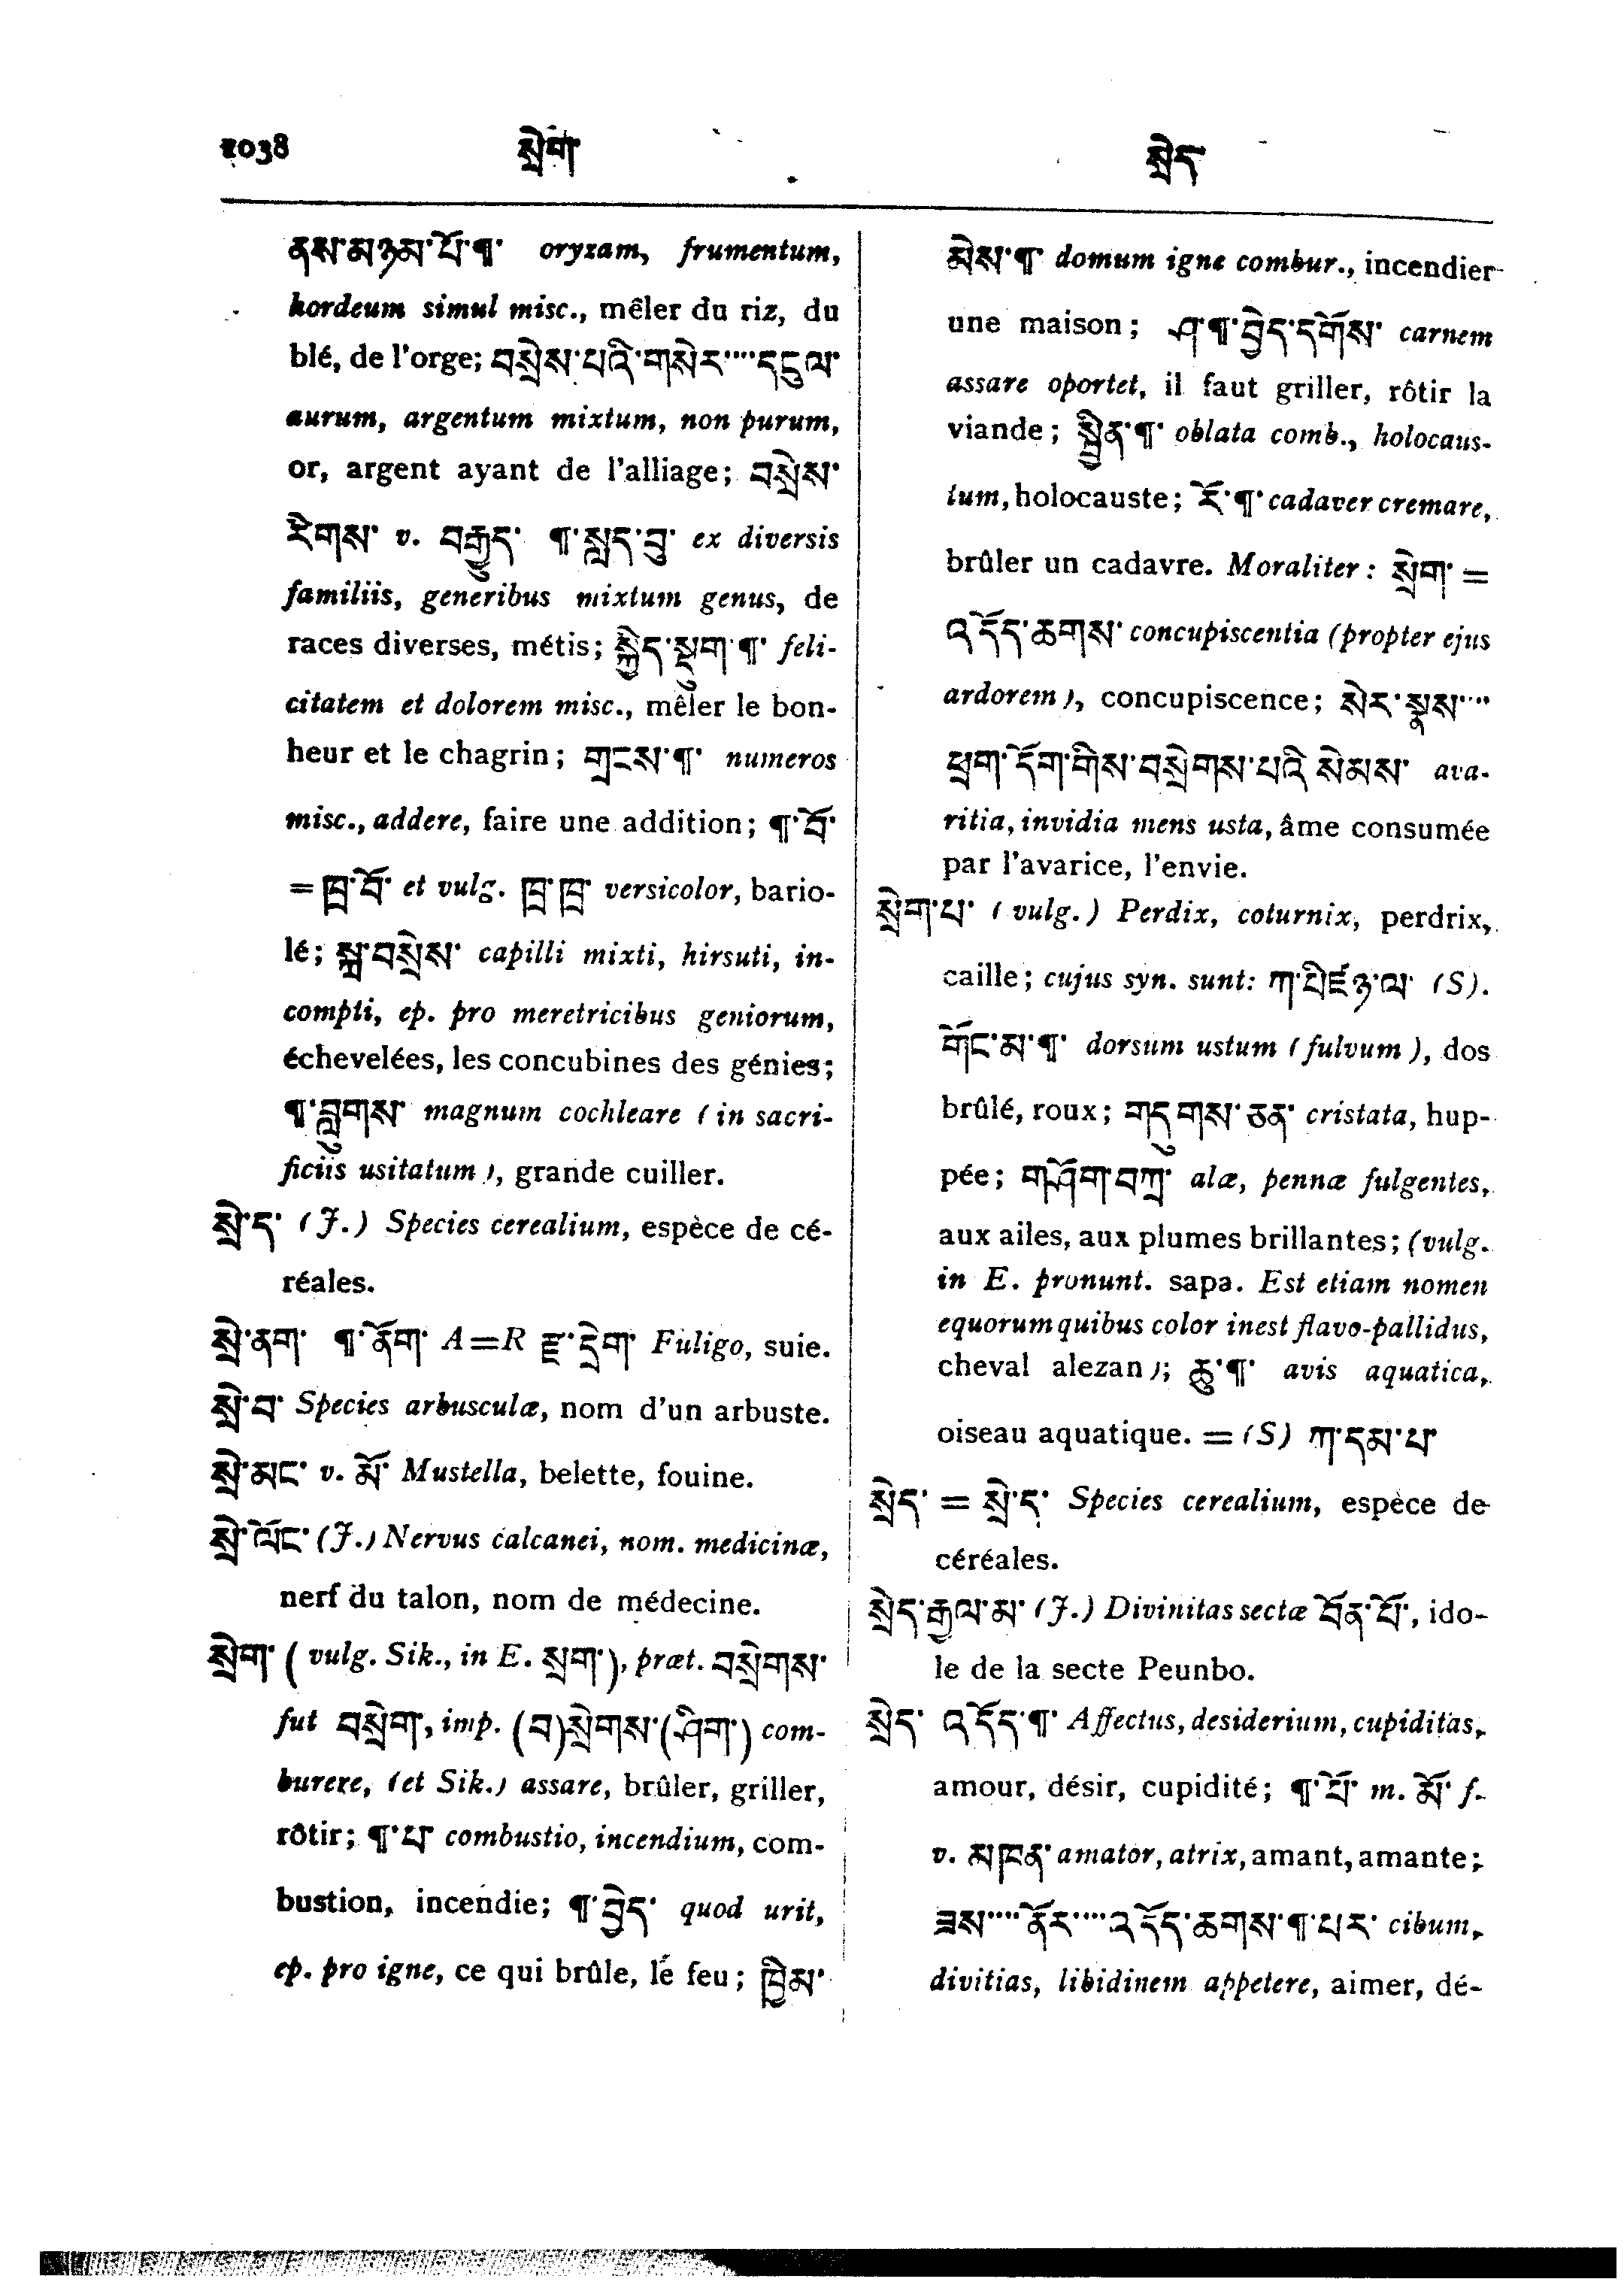 1038 སྲེག་ སྲེད་
ནས་མཉམ་པོ་¶་ oryzam, frumentum,
hordeum simul misc., mêler du riz, du
blé, de l'orge; བསྲེས་པའི་གསེར་····དངུལ་
aurum, argentum mixtum, non purum,
or, argent ayant de l'alliage; བསྲེས་
རིགས་ v. བརྒྱུད་ ¶་སླད་བུ་ ex diversis
familiis, generibus mixtum genus, de
races diverses, métis; སྐྱིད་སྡུག་¶་ feli-
citatem et dolorem misc., mêler le bon-
heur et le chagrin; གྲངས་¶་ numeros
misc., addere, faire une addition; ¶་བོ་
= ཁྲ་བོ་ et vulg. ཁྲ་ཁྲ་ versicolor, bario-
lé; སྐྲ་བསྲེས་ capilli mixti, hirsuti, in-
compti, ep. pro meretricibus geniorum,
échevelées, les concubines des génies;
¶་བླུགས་ magnum cochleare (in sacri-
ficiis usitatum), grande cuiller.
སྲེ་ད་ (J.) Species cerealium, espèce de cé-
réales.
སྲེ་ནག་ ¶་ནོག་ A=R ཛ་དྲེག་ Fuligo, suie.
སྲེ་བ་ Species arbusculæ, nom d'un arbuste.
སྲེ་མང་ v. མོ་ Mustella, belette, fouine.
སྲེ་ལོང་ (J.) Nervus calcanei, nom. medicinæ,
nerf du talon, nom de médecine.
སྲེག་ (vulg. Sik., in E. སྲག་), præt. བསྲེགས་
fut བསྲེག་, imp. (བ)སྲེགས་(ཤིག་) com-
burere, (et Sik.) assare, brûler, griller,
rôtir; ¶་པ་ combustio, incendium, com-
bustion, incendie; ¶་བྱེད་ quod urit,
ep. pro igne, ce qui brûle, le feu; ཁྱིམ་
མེས་¶་ domum igne combur., incendier
une maison; ཤ་¶་བྱེད་དགོས་ carnem
assare oportet, il faut griller, rôtir la
viande; སྦྱིན་¶་ oblata comb., holocaus-
tum, holocauste; རོ་¶་ cadaver cremare,
brûler un cadavre. Moraliter: སྲེག་ =
འདོད་ཆགས་ concupiscentia (propter ejus
ardorem), concupiscence; སེར་སྣས་····
ཕྲག་དོག་གིས་བསྲེགས་པའི་སེམས་ ava-
ritia, invidia mens usta, âme consumée
par l'avarice, l'envie.
སྲེག་པ་ (vulg.) Perdix, coturnix, perdrix,
caille; cujus syn. sunt: ཀ་པིཛ་ཉ་ལ་ (S).
གོང་མ་¶་ dorsum ustum (fulvum), dos
brûlé, roux; གདུགས་ཅན་ cristata, hup-
pée; གཤོག་བཀྲ་ alæ, pennæ fulgentes,
aux ailes, aux plumes brillantes; (vulg.
in E. pronunt. sapa. Est etiam nomen
equorum quibus color inest flavo-pallidus,
cheval alezan); ཆུ་¶་ avis aquatica,
oiseau aquatique. = (S) ཀ་དམ་པ་
སྲེད་ = སྲེ་ད་ Species cerealium, espèce de
céréales.
སྲེད་རྒྱལ་མ་ (J.) Divinitas sectæ བོན་པོ་, ido-
le de la secte Peunbo.
སྲེད་ འདོད་¶་ Affectus, desiderium, cupiditas,
amour, désir, cupidité; ¶་པོ་ m. མོ་ f.
v. མཁན་ amator, atrix, amant, amante;
ཟས་····ནོར་····འདོད་ཆགས་¶་པར་ cibum,
divitias, libidinem appetere, aimer, dé-